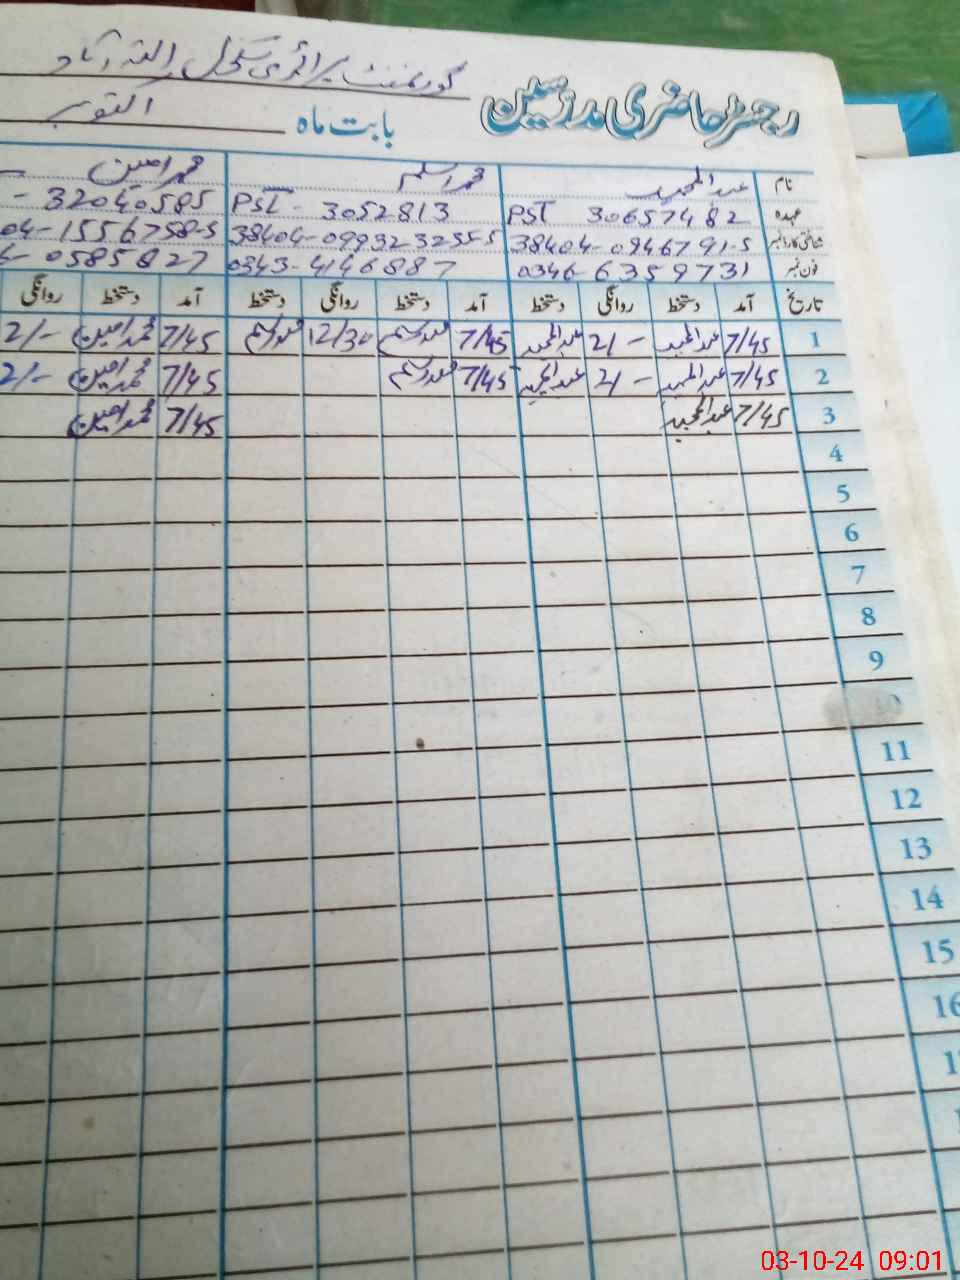 گورنمنٹ پرائمری سکول اللہ آباد
رجسٹر حاضری مدرسین
بابت ماہ اکتوبر
نام عبدالمجید محمد اسلم محمد امین
عہدہ PST 30657482 PST - 3052813 - 32040585
شناختی کارڈ نمبر 38404-0946791-5 38404-0993232555 04-1556758-5
فون نمبر 0346-6359731 0343-4146887 0585827
تاریخ آمد دستخط روانگی دستخط آمد دستخط روانگی دستخط آمد دستخط روانگی
1 7/45 عبدالمجید 2/- عبدالمجید 7/45 محمد اسلم 12/30 محمد اسلم 7/45 محمد امین 2/-
2 7/45 عبدالمجید 2/- عبدالمجید 7/45 محمد اسلم 7/45 محمد امین 2/-
3 7/45 عبدالمجید 7/45 محمد امین
4
5
6
7
8
9
10
11
12
13
14
15
16
03-10-24 09:01